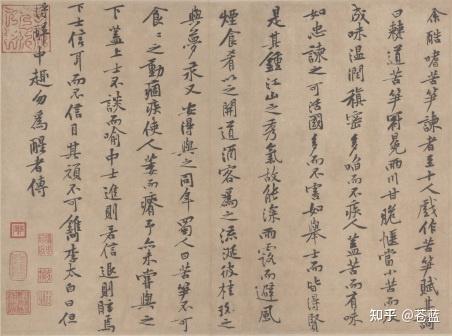 余酷嗜苦笋諫者至十人戲作苦笋賦其詞
曰僰道苦笋冠冕兩川甘脆愜當小苦而反
成味温潤稹密多啗而不疾人蓋苦而有味
如忠諫之可活國多而不害如舉士而皆得賢
是其鍾江山之秀氣故能深雨露而避風
煙食肴以之開道酒客為之流涎彼桂玫之
與夢汞又安得與之同年蜀人曰苦笋不可
食食之動痼疾使人萎而瘠予亦未嘗與之
下蓋上士不談而喻中士進則若信退則眩焉
下士信耳而不信目其頑不可鐫李太白曰但
得醉中趣勿為醒者傳
知乎 @苍蓝